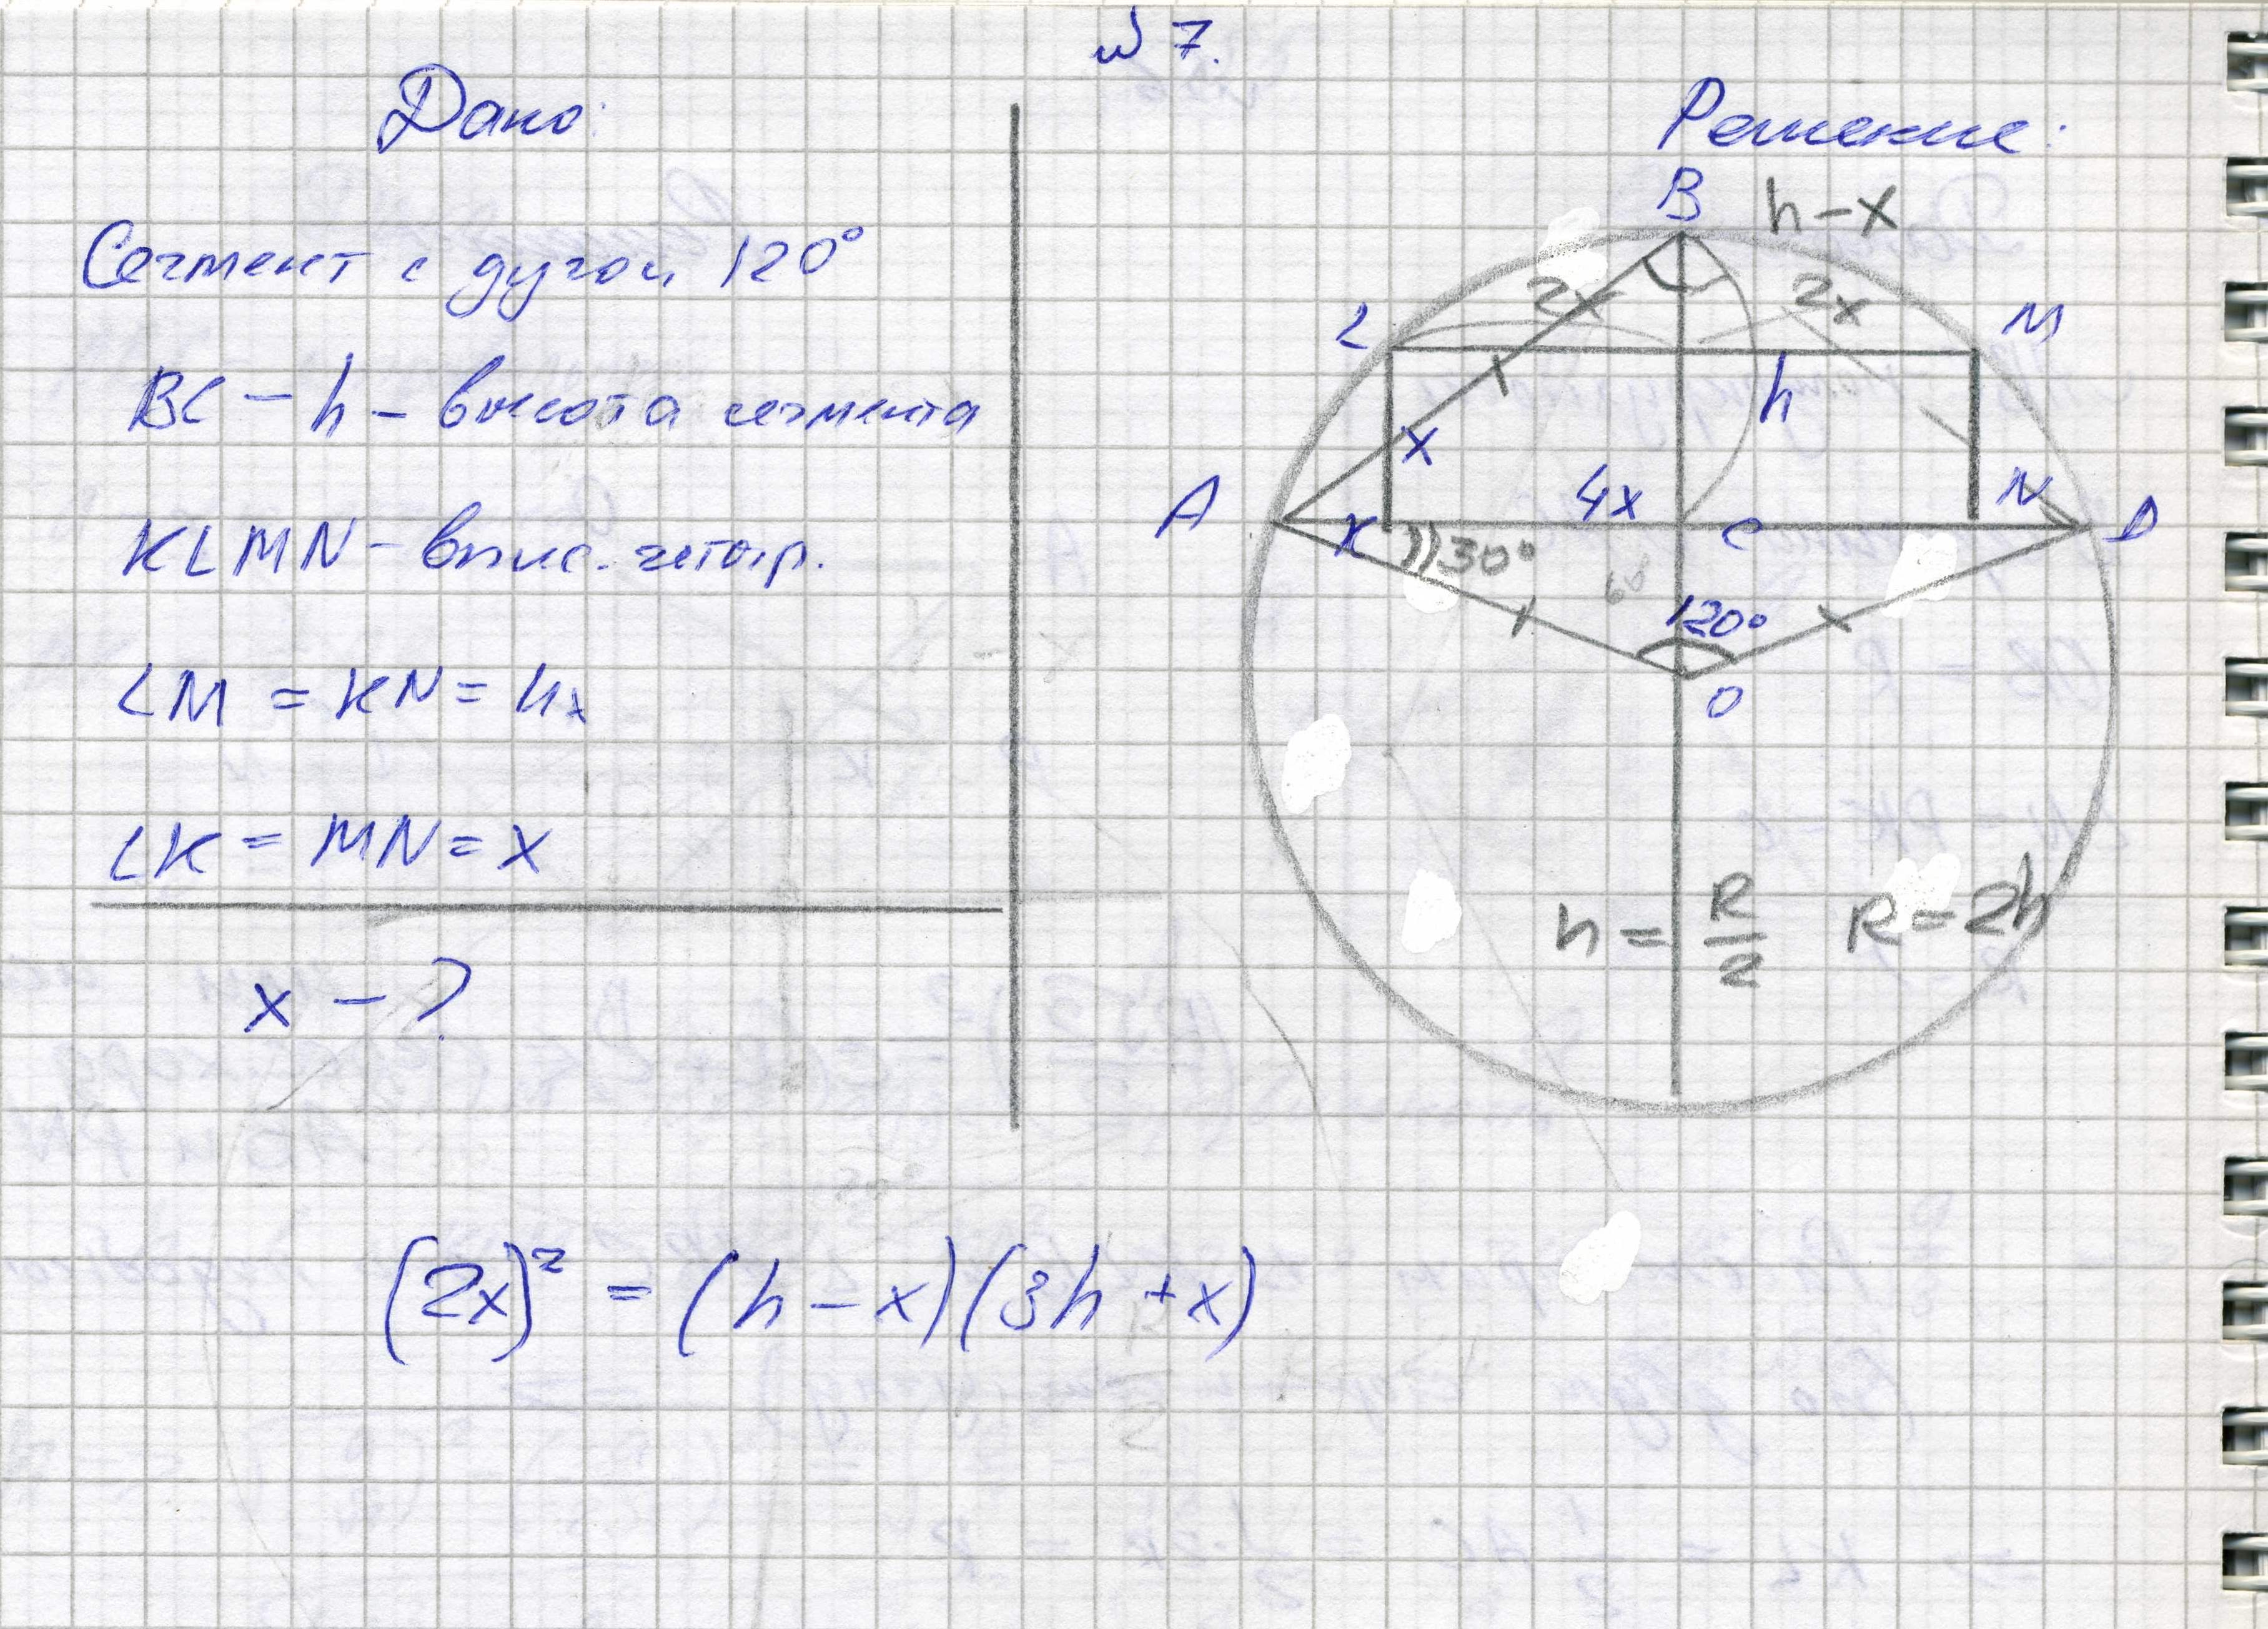 № 7.
Дано:
Сегмент с дугой 120°
BC – h – высота сегмента
KLMN – впис. четыр.
LM = KN = 4x
LK = MN = x
x – ?
Решение:
B
h – x
2x
2x
L
M
h
x
A
4x
N
K
C
D
30°
60
120°
O
h = R/2
R = 2h
(2x)² = (h – x)(3h + x)